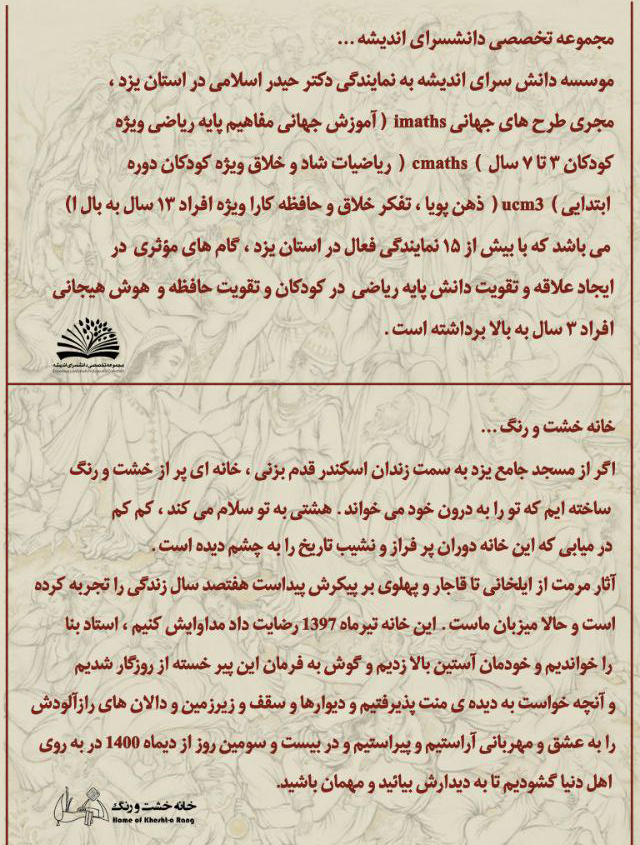 مجموعه تخصصی دانشسرای اندیشه ...
موسسه دانش سرای اندیشه به نمایندگی دکتر حیدر اسلامی در استان یزد ،
مجری طرح های جهانی imaths ( آموزش جهانی مفاهیم پایه ریاضی ویژه
کودکان ۳ تا ۷ سال ) cmaths ( ریاضیات شاد و خلاق ویژه کودکان دوره
ابتدایی ) ucm3 ( ذهن پویا ، تفکر خلاق و حافظه کارا ویژه افراد ۱۳ سال به بال ا)
می باشد که با بیش از ۱۵ نمایندگی فعال در استان یزد ، گام های مؤثری در
ایجاد علاقه و تقویت دانش پایه ریاضی در کودکان و تقویت حافظه و هوش هیجانی
افراد ۳ سال به بالا برداشته است .
مجموعه تخصصی دانشسرای اندیشه
خانه خشت و رنگ ...
اگر از مسجد جامع یزد به سمت زندان اسکندر قدم بزنی ، خانه ای پر از خشت و رنگ
ساخته ایم که تو را به درون خود می خواند . هشتی به تو سلام می کند ، کم کم
در میابی که این خانه دوران پر فراز و نشیب تاریخ را به چشم دیده است .
آثار مرمت از ایلخانی تا قاجار و پهلوی بر پیکرش پیداست هفتصد سال زندگی را تجربه کرده
است و حالا میزبان ماست . این خانه تیرماه 1397 رضایت داد مداوایش کنیم ، استاد بنا
را خواندیم و خودمان آستین بالا زدیم و گوش به فرمان این پیر خسته از روزگار شدیم
و آنچه خواست به دیده ی منت پذیرفتیم و دیوارها و سقف و زیرزمین و دالان های رازآلودش
را به عشق و مهربانی آراستیم و پیراستیم و در بیست و سومین روز از دیماه 1400 در به روی
اهل دنیا گشودیم تا به دیدارش بیائید و مهمان باشید.
خانه خشت و رنگ
Home of Khesht-o Rang